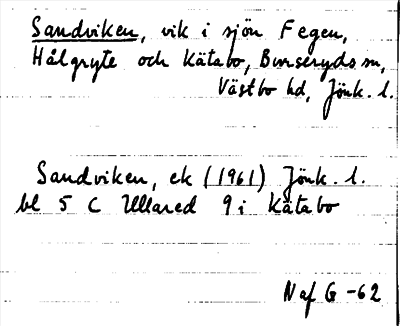 Sandviken, vik i sjön Fegen,
Hålgryte och Kätabo, Burseryds sn,
Västbo hd, Jönk. l.
Sandviken, ek (1961) Jönk. l.
bl 5 C Ullared 9 i Kätabo
Naf G -62